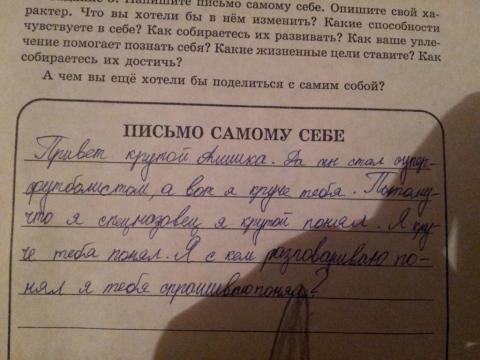 Напишите письмо самому себе. Опишите свой ха-
рактер. Что вы хотели бы в нём изменить? Какие способности
чувствуете в себе? Как собираетесь их развивать? Как ваше увле-
чение помогает познать себя? Какие жизненные цели ставите? Как
собираетесь их достичь?
А чем вы ещё хотели бы поделиться с самим собой?
ПИСЬМО САМОМУ СЕБЕ
Привет крутой Алишка. Да ты стал супер-
футболистом, а вот я круче тебя. Потому-
что я спецназовец я крутой понял. Я кру-
че тебя понял. Я с кем разговариваю по-
нял я тебя спрашиваю понял?